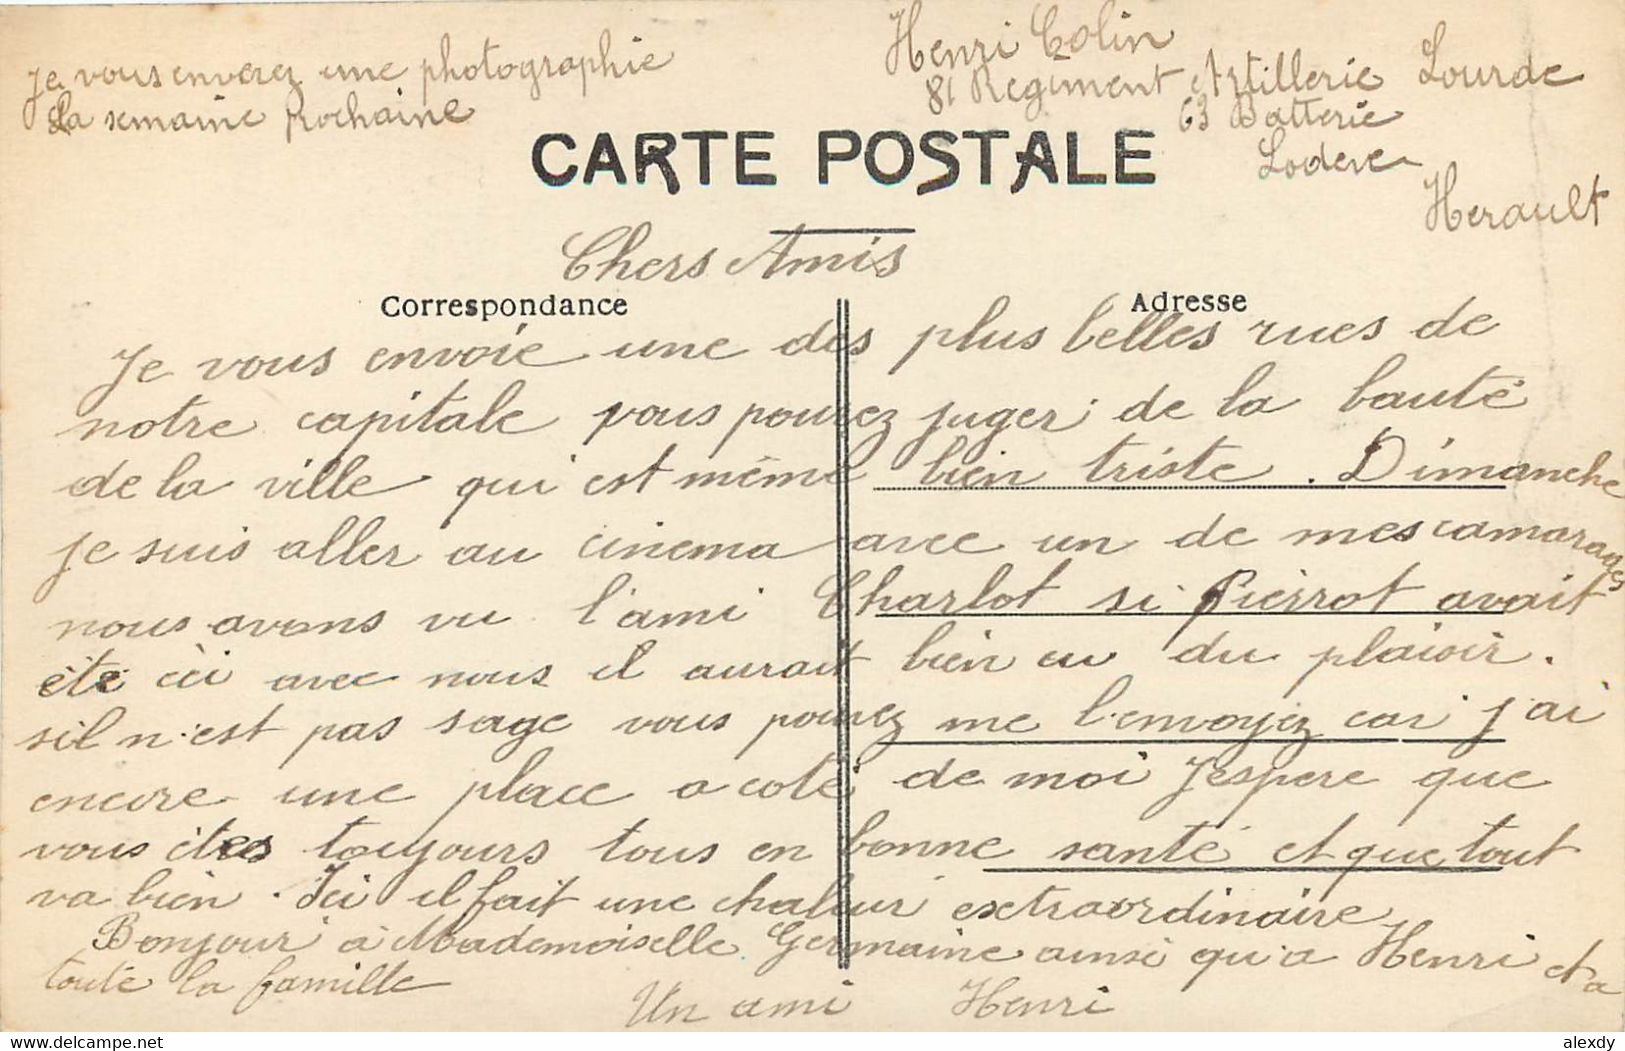 Je vous enverez une photographie
La semaine prochaine
Henri Colin
81 Regiment Artillerie Lourde
63 Batterie
Lodeve
Herault
CARTE POSTALE
Chers Amis
Correspondance
Adresse
Je vous envoie une des plus belles rues de
notre capitale vous pouvez juger de la bauté
de la ville qui est même bien triste. Dimanche
je suis aller au cinema avec un de mes camarades
nous avons vu l'ami Charlot si Pierrot avait
été ici avec nous il aurait bien eu du plaisir.
sil n'est pas sage vous pouvez me l'envoyez car j'ai
encore une place a coté de moi J'espere que
vous êtes toujours tous en bonne santé et que tout
va bien. Ici il fait une chaleur extraordinaire
Bonjour a Mademoiselle Germaine ainsi qu'a Henri et a
toute la famille
Un ami Henri
delcampe.net
alexdy